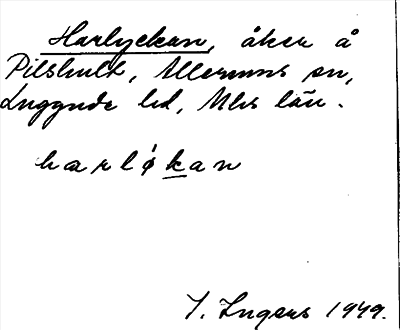 Harlyckan, åker å
Pilshult, Allerums sn,
Luggude hd, Mlhs län.
harløkan
I. Ingers 1949.